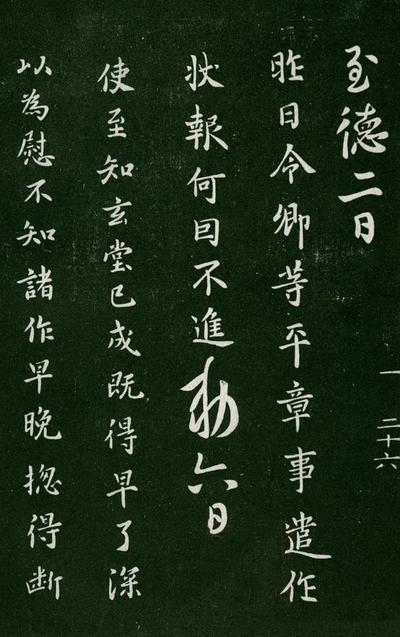 一 二十六
至德二日
昨日令卿等平章事遣作
状報何囙不進勅六日
使至知玄堂已成既得早了深
以為慰不知諸作早晚揔得断